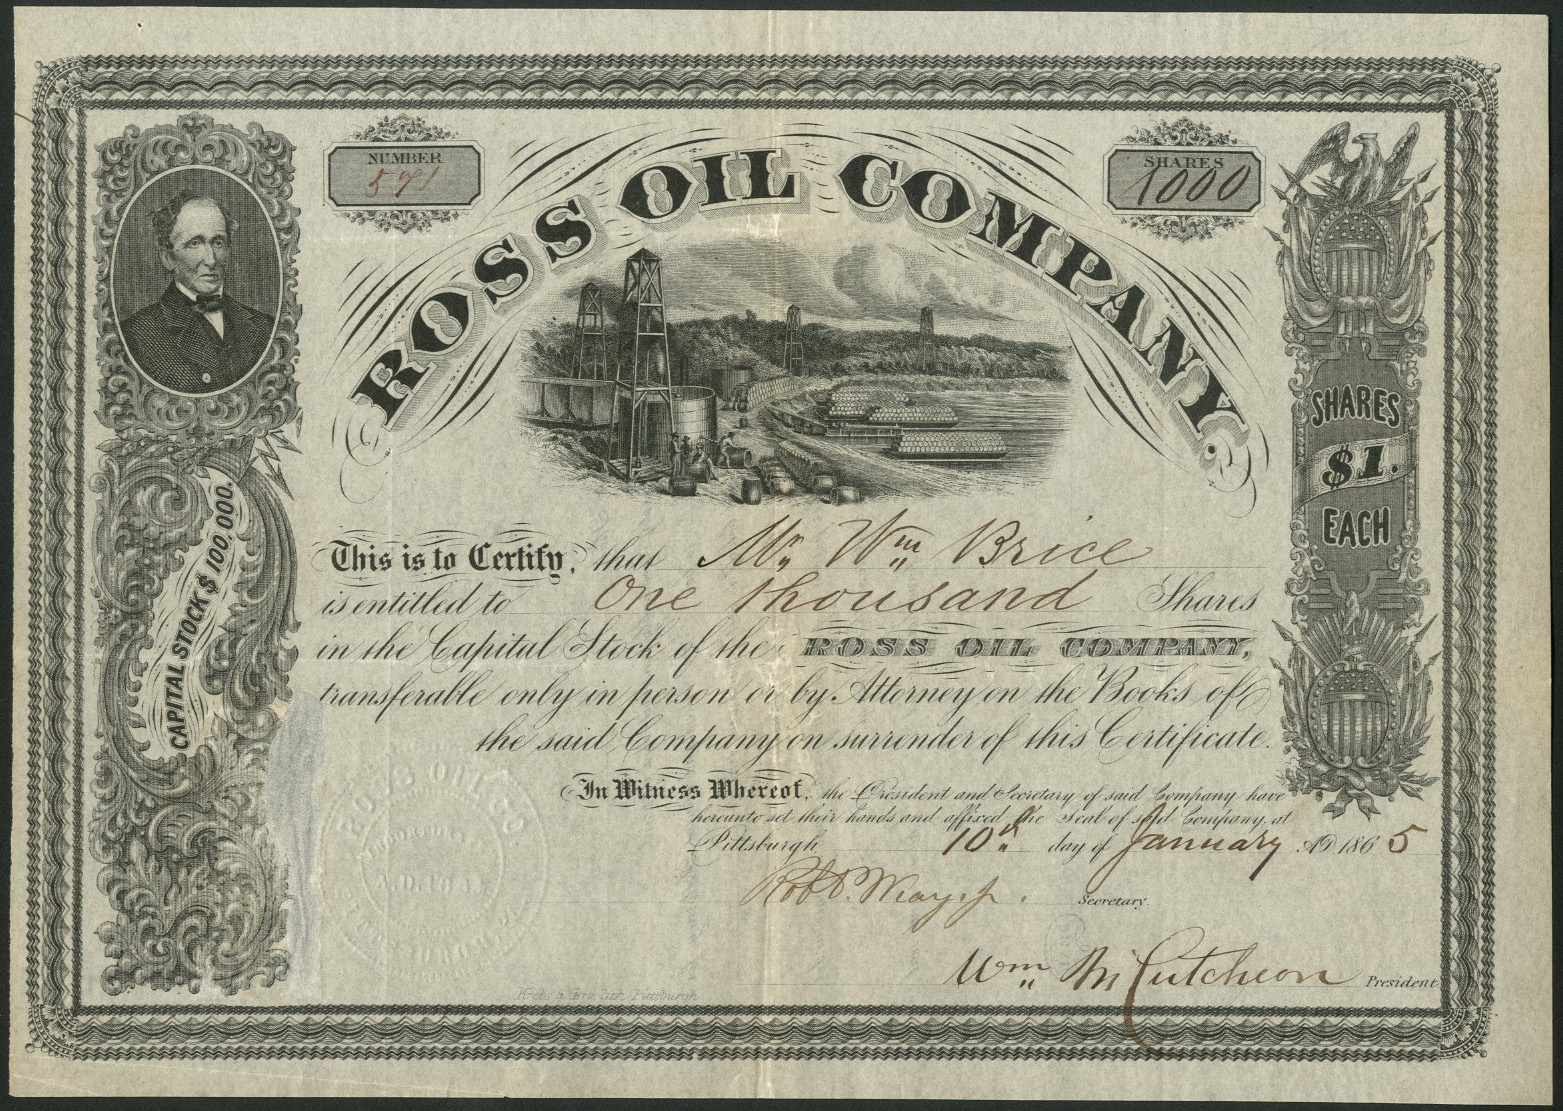 NUMBER
571
ROSS OIL COMPANY.
SHARES
1000
SHARES
$1.
EACH
CAPITAL STOCK $100,000.
This is to Certify, that Mr Wm Brice
is entitled to One thousand Shares
in the Capital Stock of the ROSS OIL COMPANY,
transferable only in person or by Attorney on the Books of
the said Company on surrender of this Certificate.
In Witness Whereof, the President and Secretary of said Company have
hereunto set their hands and affixed the Seal of said Company, at
Pittsburgh 10th day of January AD. 1865
Secretary
Wm McCutcheon President
ROSS OIL CO
A.D. 186
Pittsburgh